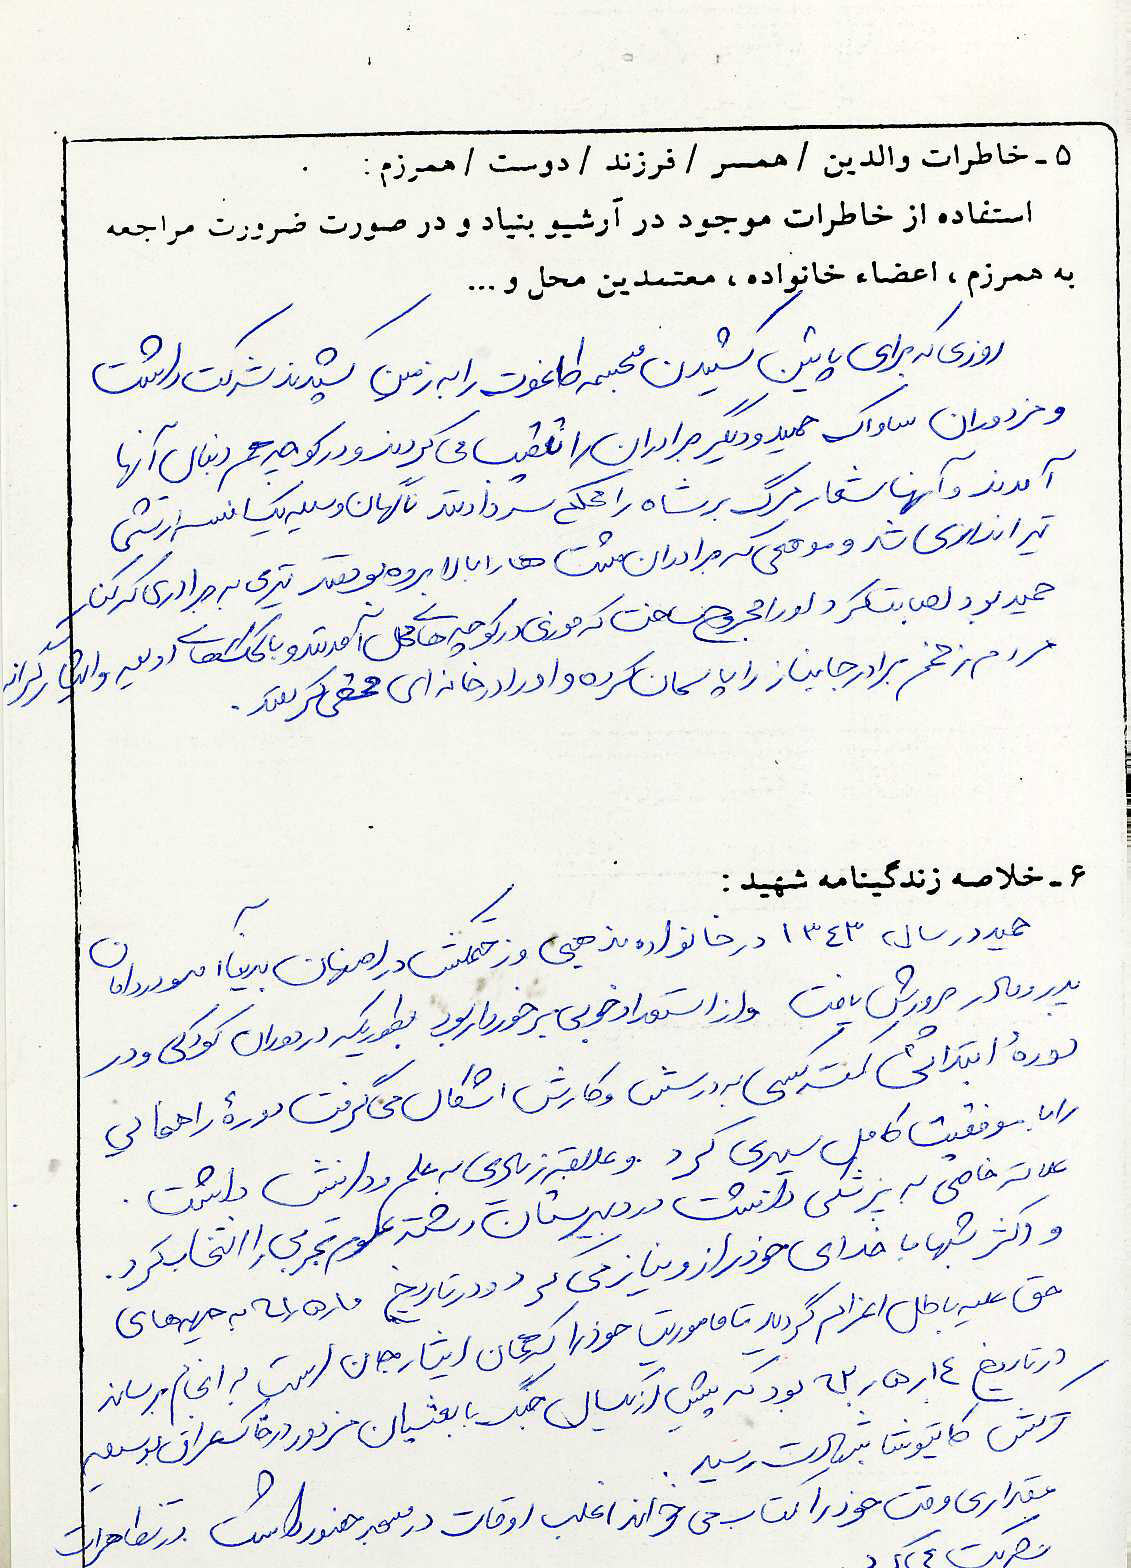 ۵ - خاطرات والدین / همسر / فرزند / دوست / همرزم :
استفاده از خاطرات موجود در آرشیو بنیاد و در صورت ضرورت مراجعه
به همرزم ، اعضاء خانواده ، معتمدین محل و ...
روزی که برای پایین کشیدن مجسمه طاغوت را به زمین کشیدند شرکت داشت
و مزدوران ساواک حمید و دیگر برادران را تعقیب می کردند و در کوچه هم دنبال آنها
آمدند و آنها شعار مرگ بر شاه را محکم سر دادند ناگهان وسیله یک افسر ارتشی
تیراندازی شد و موقعی که برادران مشت ها را بالا برده بودند تیری به برادری که کنار
حمید بود اصابت کرد او را مجروح ساخت که فوری در کوچه های محل آمدند و با کمکهای اولیه و ایثارگرانه
مردم زخم برادر جانباز را پانسمان کرده و او را در خانه ای مخفی کردند .
۶ - خلاصه زندگینامه شهید :
حمید در سال ۱۳۴۳ در خانواده مذهبی و زحمتکش در اصفهان بدنیا آمد و در دامان
پدر و مادر پرورش یافت و از استعداد خوبی برخوردار بود بطوریکه در دوران کودکی و در
دورهٔ ابتدائی کمتر کسی به درسش و کارش اشکال می گرفت دورهٔ راهنمایی
را با موفقیت کامل سپری کرد و علاقه زیادی به علم و دانش داشت .
علاقه خاصی به پزشکی داشت در دبیرستان رشته علوم تجربی را انتخاب کرد .
و اکثر شبها با خدای خود راز و نیاز می کرد و در تاریخ به جبهه های
حق علیه باطل اعزام گردید تا ماموریت خود را که همان ایثار جان است به انجام برساند
در تاریخ ۱۴ر۵ر۶۲ بود که پیش از یکسال جنگ با بعثیان مزدور در خاک عراق بوسیله
ترکش کاتیوشا بشهادت رسید .
مقداری وقت خود را کتاب می خواند اغلب اوقات در مسجد حضور داشت در تظاهرات
شرکت می کرد